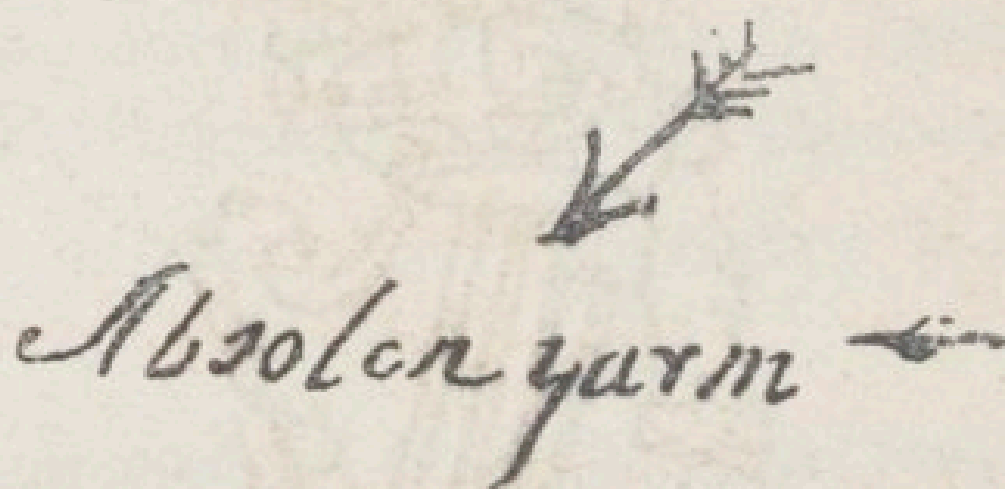 Absolon yarm